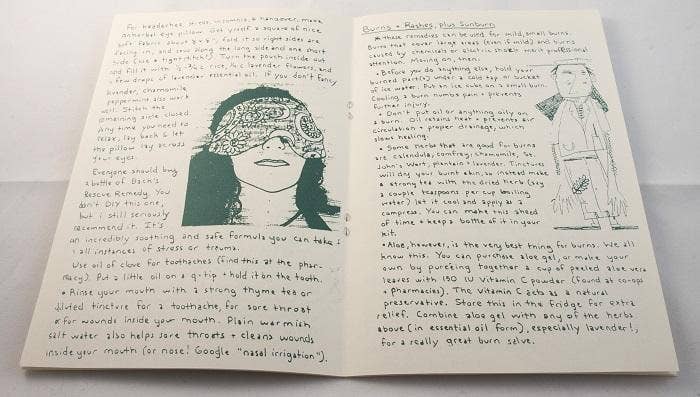 For headaches, stress, insomnia, & hangover, make
an herbal eye pillow. Get yrself a square of nice
soft fabric about 9 x 9, fold it so right sides are
facing in, and sew along the long side and one short
side (use a tight stitch!). Turn the pouch inside out
and fill it with ½ c. rice, ¼ c lavender flowers, and
a few drops of lavender essential oil. If you don't fancy
lavender, chamomile,
peppermint also work
well. Stitch the
remaining side closed.
Any time you need to
relax, lay back & let
the pillow lay across
your eyes.
Everyone should buy
a bottle of Bach's
Rescue Remedy. You
don't DIY this one,
but i still seriously
recommend it. It's
an incredibly soothing and safe formula you can take
all instances of stress or trauma.
Use oil of clove for toothaches (find this at the phar-
macy). Put a little oil on a q-tip + hold it on the tooth.
• Rinse your mouth with a strong thyme tea or
diluted tincture for a toothache, for sore throat
or for wounds inside your mouth. Plain warmish
salt water also helps sore throats + cleans wounds
inside your mouth (or nose! Google "nasal irrigation").
Burns + Rashes, plus Sunburn
* these remedies can be used for mild, small burns.
Burns that cover large areas (even if mild) and burns
caused by chemicals or electric shock merit professional
attention. Moving on, then:
• Before you do anything else, hold your
burned part(s) under a cold tap or bucket
of ice water. Put an ice cube on a small burn.
Cooling a burn numbs pain + prevents
further injury.
• Don't put oil or anything oily on
a burn. Oil retains heat + prevents air
circulation + proper drainage, which
slows healing.
• Some herbs that are good for burns
are calendula, comfrey, chamomile, St.
John's Wort, plantain + lavender. Tinctures
will dry your burnt skin, so instead make
a strong tea with the dried herb (say
a couple teaspoons per cup boiling
water) let it cool and apply as a
compress. You can make this ahead
of time + keep a bottle of it in your
kit.
• Aloe, however, is the very best thing for burns. We all
know this. You can purchase aloe gel, or make your
own by puréeing together a cup of peeled aloe vera
leaves with 150 IU Vitamin C powder (found at co-ops
+ pharmacies). The vitamin C acts as a natural
preservative. Store this in the fridge for extra
relief. Combine aloe gel with any of the herbs
above (in essential oil form), especially lavender!,
for a really great burn salve.